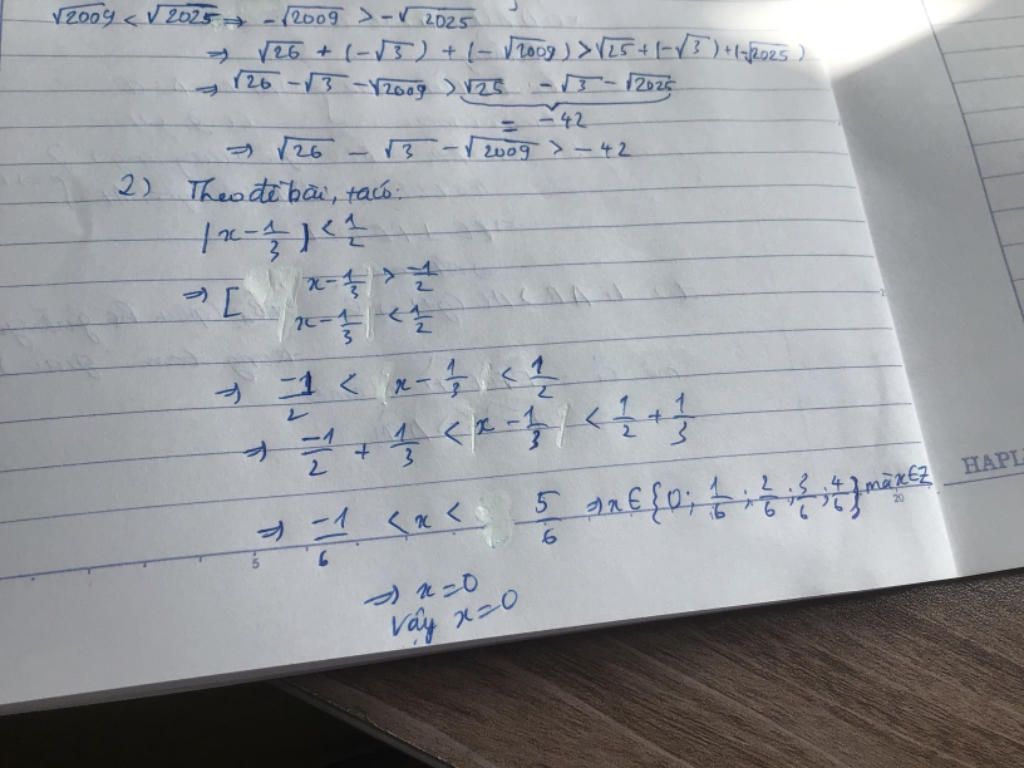 √2009 < √2025 ⇒ -√2009 > -√2025
⇒ √26 + (-√3) + (-√2009) > √25 + (-√3) + (-√2025)
⇒ √26 - √3 - √2009 > √25 - √3 - √2025
= -42
⇒ √26 - √3 - √2009 > -42
2) Theo đề bài, ta có:
|x - 1/3| < 1/2
⇒ [ x - 1/3 > -1/2
x - 1/3 < 1/2
⇒ -1/2 < x - 1/3 < 1/2
⇒ -1/2 + 1/3 < x - 1/3 < 1/2 + 1/3
⇒ -1/6 < x < 5/6 ⇒ x ∈ {0; 1/6; 2/6; 3/6; 4/6} mà x ∈ Z
⇒ x = 0
Vậy x = 0
HAPL
5
20